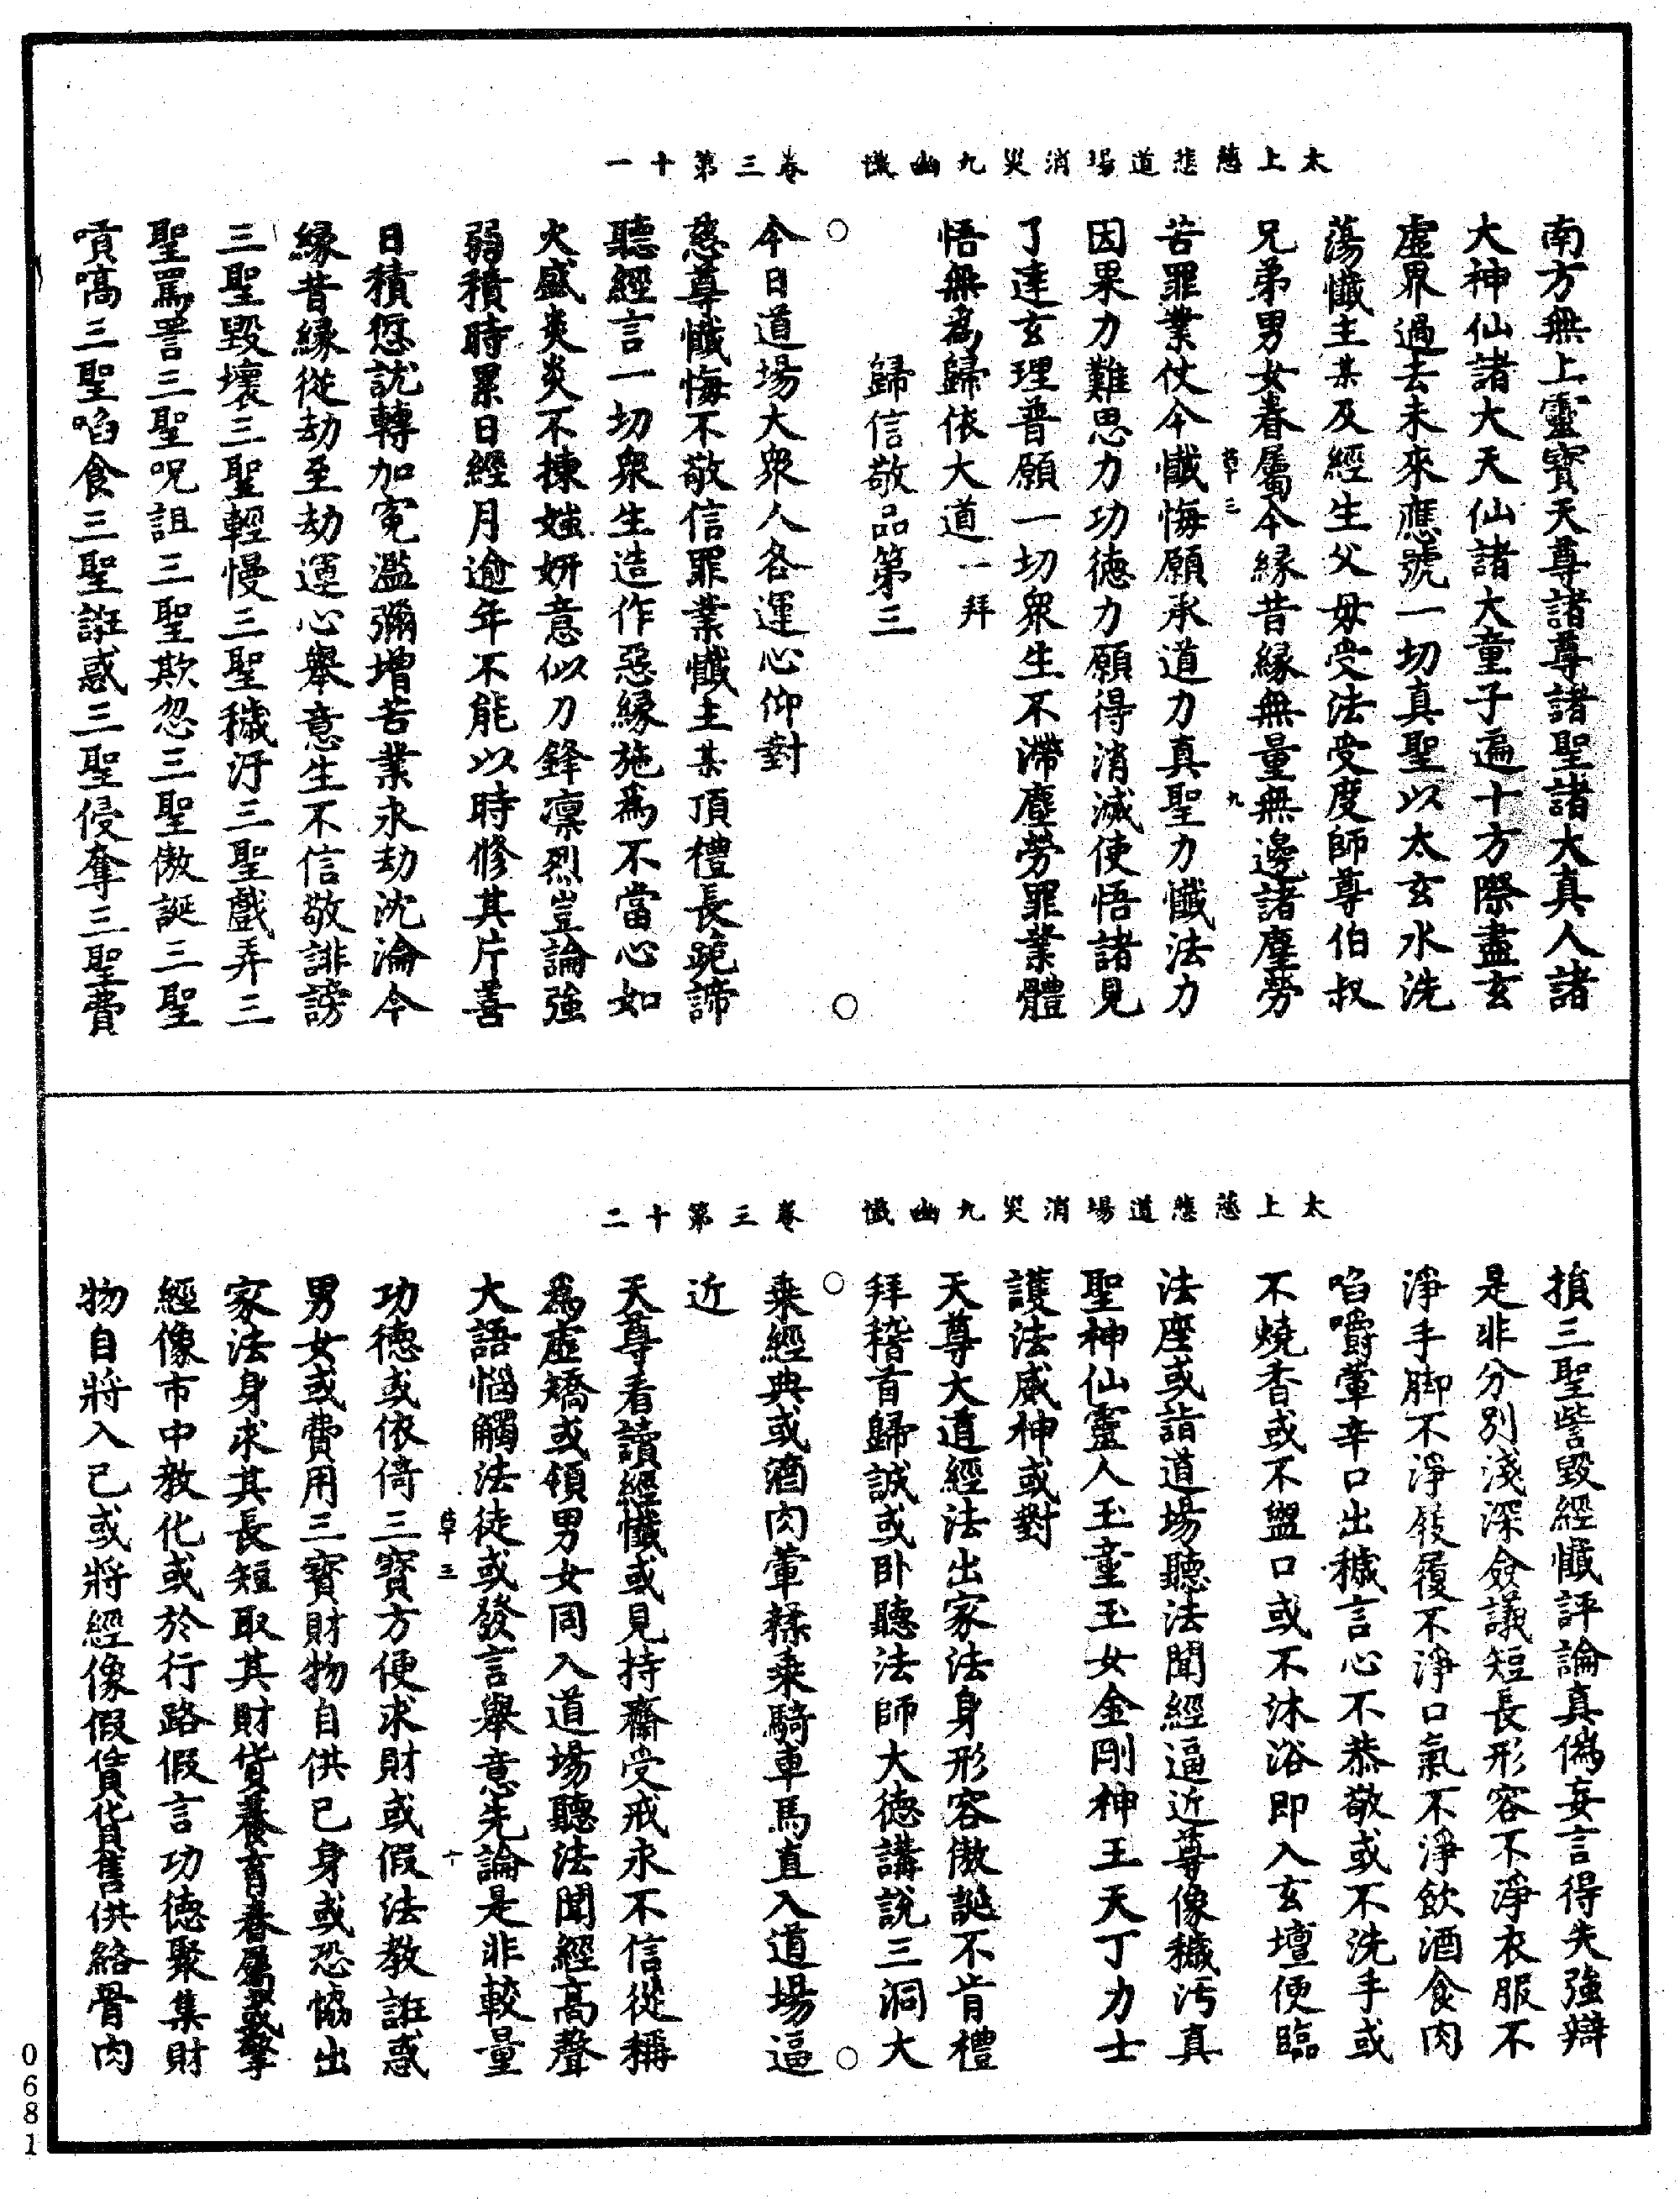 太上慈悲道場消災九幽懺　卷三第十一
南方無上靈寶天尊諸尊諸聖諸大真人諸
大神仙諸大天仙諸大童子遍十方際盡玄
虛界過去未來應號一切真聖以太玄水洗
蕩懺主某及經生父母受法受度師尊伯叔
兄弟男女眷屬今緣昔緣無量無邊諸塵勞
草三　九
苦罪業仗今懺悔願承道力真聖力懺法力
因果力難思力功德力願得消滅使悟諸見
了達玄理普願一切眾生不滯塵勞罪業體
悟無為歸依大道一拜
歸信敬品第三
今日道場大眾人各運心仰對
慈尊懺悔不敬信罪業懺主某頂禮長跪諦
聽經言一切眾生造作惡緣施為不當心如
火盛炎炎不揀媸妍意似刀鋒凛烈豈論強
弱積時累日經月逾年不能以時修其片善
日積愆訧轉加冤濫彌增苦業永劫沈淪今
緣昔緣從劫至劫運心舉意生不信敬誹謗
三聖毀壞三聖輕慢三聖穢汙三聖戲弄三
聖罵詈三聖呪詛三聖欺忽三聖傲誕三聖
嗊嗃三聖啗食三聖誑惑三聖侵奪三聖費
太上慈悲道場消災九幽懺　卷三第十二
損三聖訾毀經懺評論真偽妄言得失強辯
是非分別淺深僉議短長形容不淨衣服不
淨手腳不淨屐履不淨口氣不淨飲酒食肉
啗嚼葷辛口出穢言心不恭敬或不洗手或
不燒香或不盥口或不沐浴即入玄壇便臨
法座或詣道場聽法聞經逼近尊像穢污真
聖神仙靈人玉童玉女金剛神王天丁力士
護法威神或對
天尊大道經法出家法身形容傲誕不肯禮
拜稽首歸誠或卧聽法師大德講說三洞大
乘經典或酒肉葷糅乘騎車馬直入道場逼
近
天尊看讀經懺或見持齋受戒永不信從稱
為虛矯或領男女同入道場聽法聞經高聲
大語惱觸法徒或發言舉意先論是非較量
草三　十
功德或依倚三寶方便求財或假法教誑惑
男女或費用三寶財物自供己身或恐恊出
家法身求其長短取其財貨養育眷屬或擎
經像市中教化或於行路假言功德聚集財
物自將入己或將經像假賃貨售供給骨肉
0681